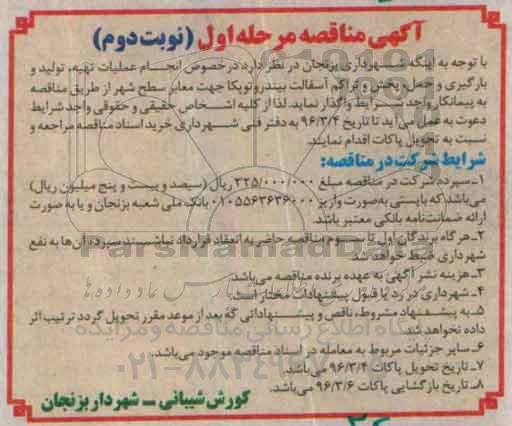 آگهی مناقصه مرحله اول (نوبت دوم)
با توجه به اینکه شهرداری بزنجان در نظر دارد درخصوص انجام عملیات تهیه، تولید و
بارگیری و حمل، پخش و تراکم آسفالت بیندر و توپکا جهت معابر سطح شهر از طریق مناقصه
به پیمانکار واجد شرایط واگذار نماید. لذا از کلیه اشخاص حقیقی و حقوقی واجد شرایط
دعوت به عمل می آید تا تاریخ ۹۶/۳/۴ به دفتر فنی شهرداری خرید اسناد مناقصه مراجعه و
نسبت به تحویل پاکات اقدام نمایند.
شرایط شرکت در مناقصه:
۱ـ سپرده شرکت در مناقصه مبلغ ۳۲۵/۰۰۰/۰۰۰ ریال (سیصد و بیست و پنج میلیون ریال)
می‌باشد که بایستی به‌صورت واریز ۰۱۰۵۵۶۳۶۳۶۰۰۰ بانک ملی شعبه بزنجان و یا به صورت
ارائه ضمانت‌نامه بانکی معتبر باشد.
۲ـ هرگاه برندگان اول تا سوم مناقصه حاضر به انعقاد قرارداد نباشند سپرده آن‌ها به نفع
شهرداری ضبط خواهد شد.
۳ـ هزینه نشر آگهی به عهده برنده مناقصه می‌باشد.
۴ـ شهرداری در رد یا قبول پیشنهادات مختار است.
۵ـ به پیشنهاد مشروط، ناقص و پیشنهاداتی که بعد از موعد مقرر تحویل گردد ترتیب اثر
داده نخواهد شد.
۶ـ سایر جزئیات مربوط به معامله در اسناد مناقصه موجود می‌باشد.
۷ـ تاریخ تحویل پاکات ۹۶/۳/۴ می‌باشد.
۸ـ تاریخ بازگشایی پاکات ۹۶/۳/۶ می‌باشد.
کورش شیبانی ـ شهردار بزنجان
ParsNamadData